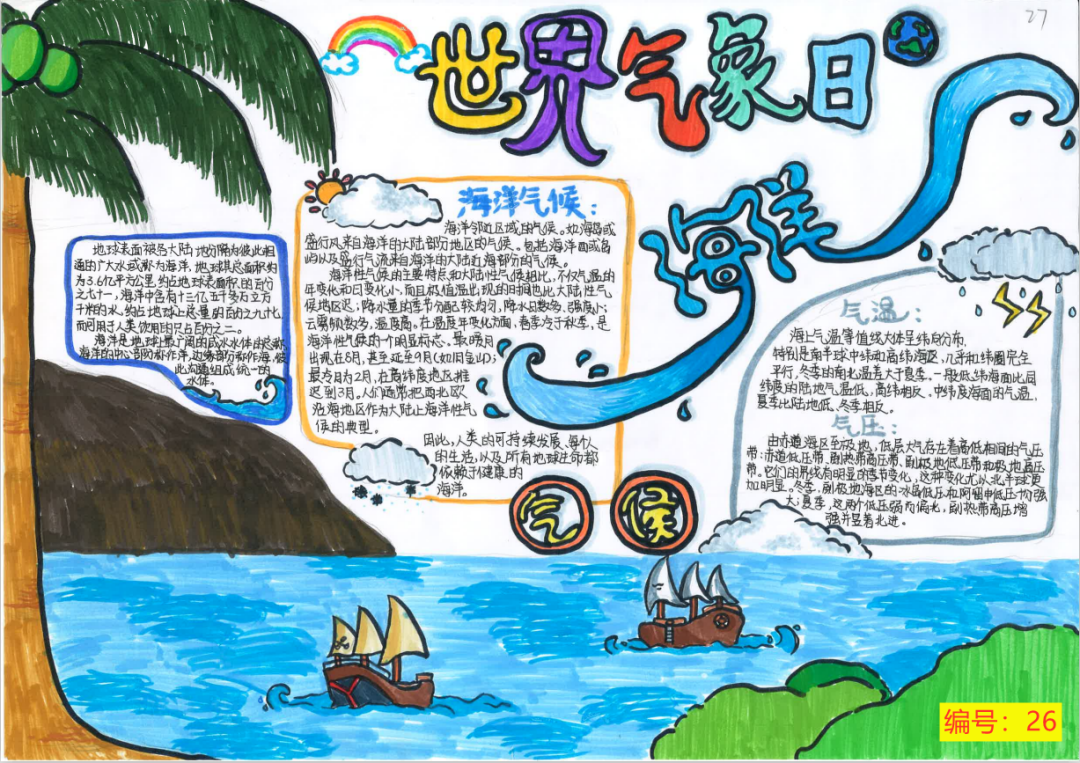 27
世界气象日
海洋
气候
地球表面被各大陆地分隔为彼此相
通的广大水域称为海洋，地球其总面积约
为3.6亿平方公里，约占地球表面积的百分
之七十一，海洋中含有十三亿五千多万立方
千米的水，约占地球上总量的百分之九十七，
而可用于人类饮用的只占百分之二。
海洋是地球上最广阔的咸水水体的总称
海洋的中心部分称作洋，边缘部分称作海，彼
此沟通组成统一的
水体。
海洋气候：
海洋邻近区域的气候。如海岛或
盛行风来自海洋的大陆部分地区的气候。包括海洋面或岛
屿以及盛行气流来自海洋的大陆近海部分的气候。
海洋性气候的主要特点和大陆性气候相比，不仅气温的
年变化和日变化小，而且极值温出现的时间也比大陆性气
候地区迟；降水量的季节分配较均匀，降水日数多，强度小；
云雾频数多，湿度高。在温度年变化方面，春季冷于秋季，是
海洋性气候的一个明显标志。最暖月
出现在8月，甚至延至9月(如旧金山)；
最冷月为2月，在高纬度地区推
迟到3月。人们通常把西北欧
沿海地区作为大陆上海洋性气
候的典型。
因此，人类的可持续发展、每个人
的生活，以及所有地球生命都
依赖于健康的
海洋。
气温：
海上气温等值线大体呈纬向分布，
特别是南半球中纬和高纬海区，几乎和纬圈完全
平行，冬季的南北温差大于夏季。一般低纬海面比同
纬度的陆地气温低，高纬相反。中纬度海面的气温，
夏季比陆地低、冬季相反。
气压：
由赤道海区至极地，低层大气存在着高低相间的气压
带：赤道低压带、副热带高压带、副极地低压带和极地高压
带。它们的界线有明显的季节变化，这种变化尤以北半球更
加明显。冬季，副极地海区的冰岛低压和阿留申低压均强
大；夏季，这两个低压弱而偏北，副热带高压增
强并显着北进。
编号：26